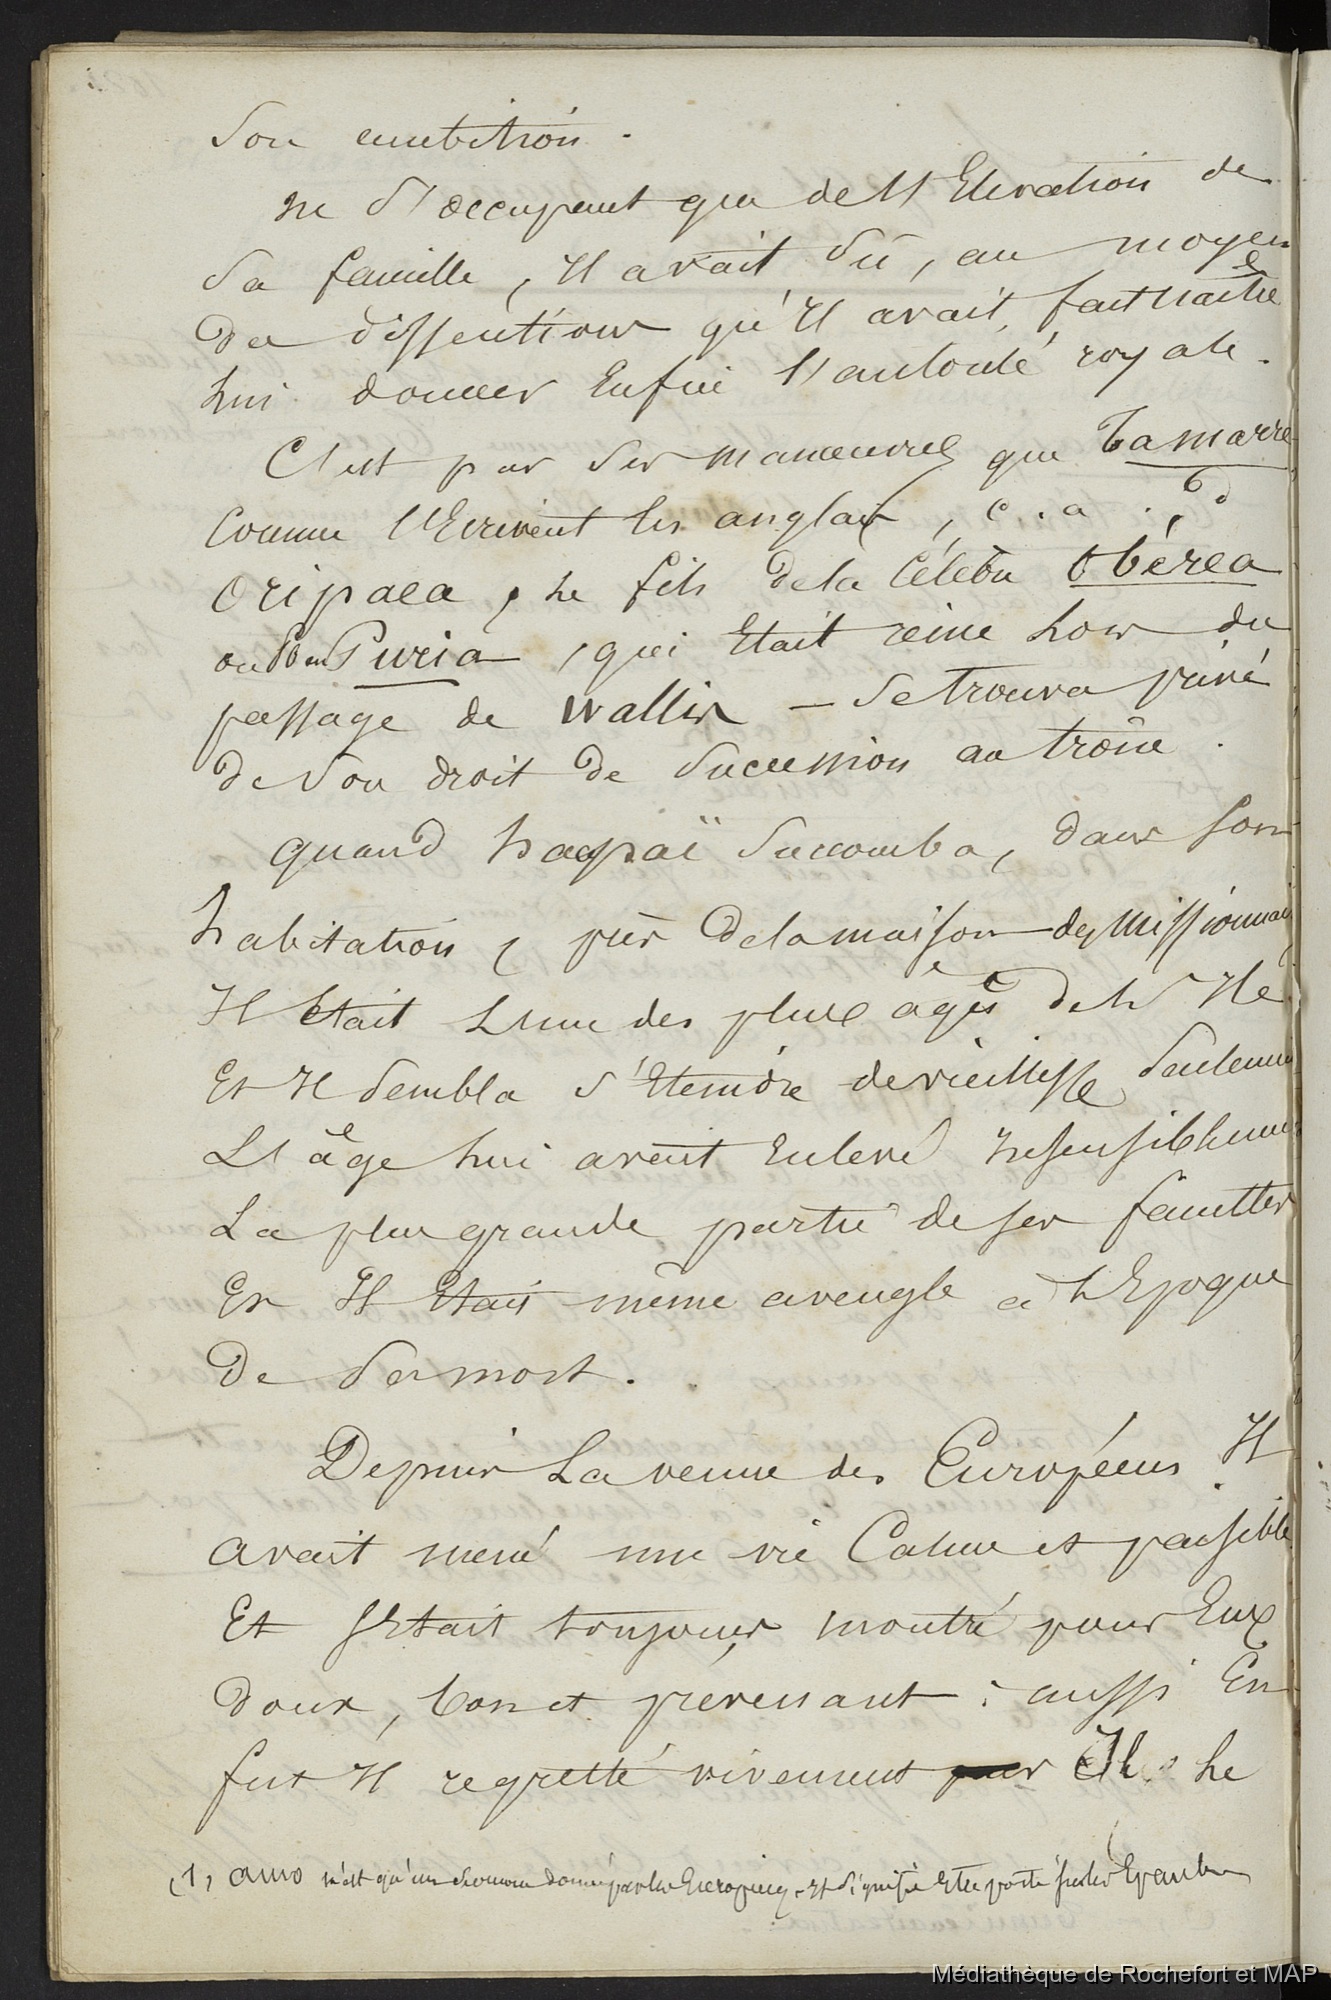 Son ambition.
ne s'occupant que de l'Elevation de
Sa famille, Il avait Sû, au moyen
Des dissentions qu'Il avait, fait naitre
lui donner Enfin l'autorité royale.
C'est par Ses manœuvres que Tamarre
Comme l'Ecrivent les anglais, c. a. d
Oripaea, le fils de la Célèbre Obérea
ou Puria, qui Etait reine lors du
passage de Wallis — Se trouva privé
de Son droit de Succession au trône.
quand haapaï Succomba, dans son
habitation, près de la maison des Missionnai
Il Etait L'une des plus agés de l'Ile
Et Il Sembla s'Eteindre de vieillesse Seulement
L'âge lui avait Enlevé Insensiblement
La plus grande partie de ses facultés
Et Il Etait même aveugle à l'Epoque
De Sa mort.
Depuis La venue des Européens Il
avait mené une vie Calme et paisible
Et s'Etait toujours montré pour Eux
Doux, bon et prévenant : aussi En
fut Il regretté vivement Ils le
(1) amo n'est qu'un Surnom donné par les Européens, Et Signifie Etre porté sur les Epaules
Médiathèque de Rochefort et MAP